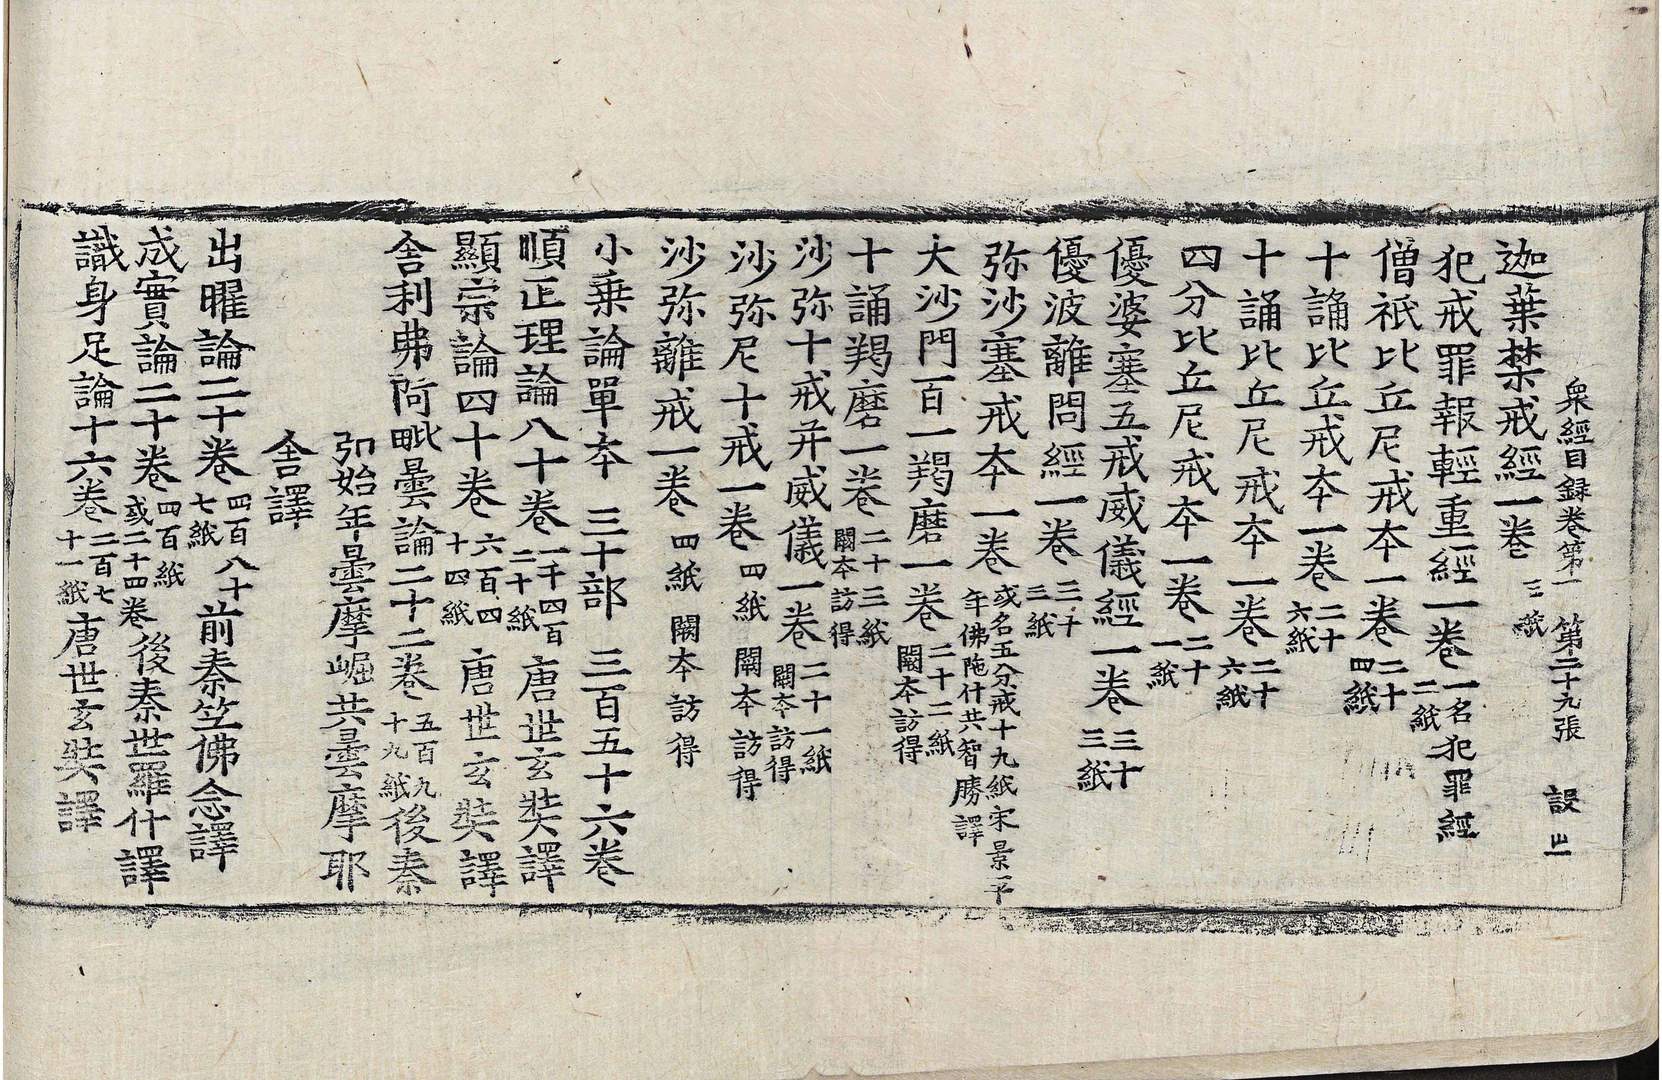 衆經目錄卷第一 第二十九張 設
迦葉禁戒經一卷 三紙
犯戒罪報輕重經一卷 一名犯罪經 二紙
僧祇比丘尼戒本一卷 二十四紙
十誦比丘戒本一卷 二十六紙
十誦比丘尼戒本一卷 二十六紙
四分比丘尼戒本一卷 二十一紙
優婆塞五戒威儀經一卷 三十三紙
優波離問經一卷 三十三紙
弥沙塞戒本一卷 或名五分戒十九紙宋景平年佛陁什共智勝譯
大沙門百一羯磨一卷 二十二紙闕本訪得
十誦羯磨一卷 二十三紙闕本訪得
沙弥十戒并威儀一卷 二十一紙闕本訪得
沙弥尼十戒一卷 四紙 闕本訪得
沙弥離戒一卷 四紙 闕本訪得
小乗論單本 三十部 三百五十六卷
順正理論八十卷 一千四百二十紙 唐世玄奘譯
顯宗論四十卷 六百四十四紙 唐世玄奘譯
舍利弗阿毗曇論二十二卷 五百九十九紙 後秦
弘始年曇摩崛共曇摩耶
舍譯
出曜論二十卷 四百八十七紙 前秦竺佛念譯
成實論二十卷 四百紙或二十四卷 後秦世羅什譯
識身足論十六卷 二百七十一紙 唐世玄奘譯